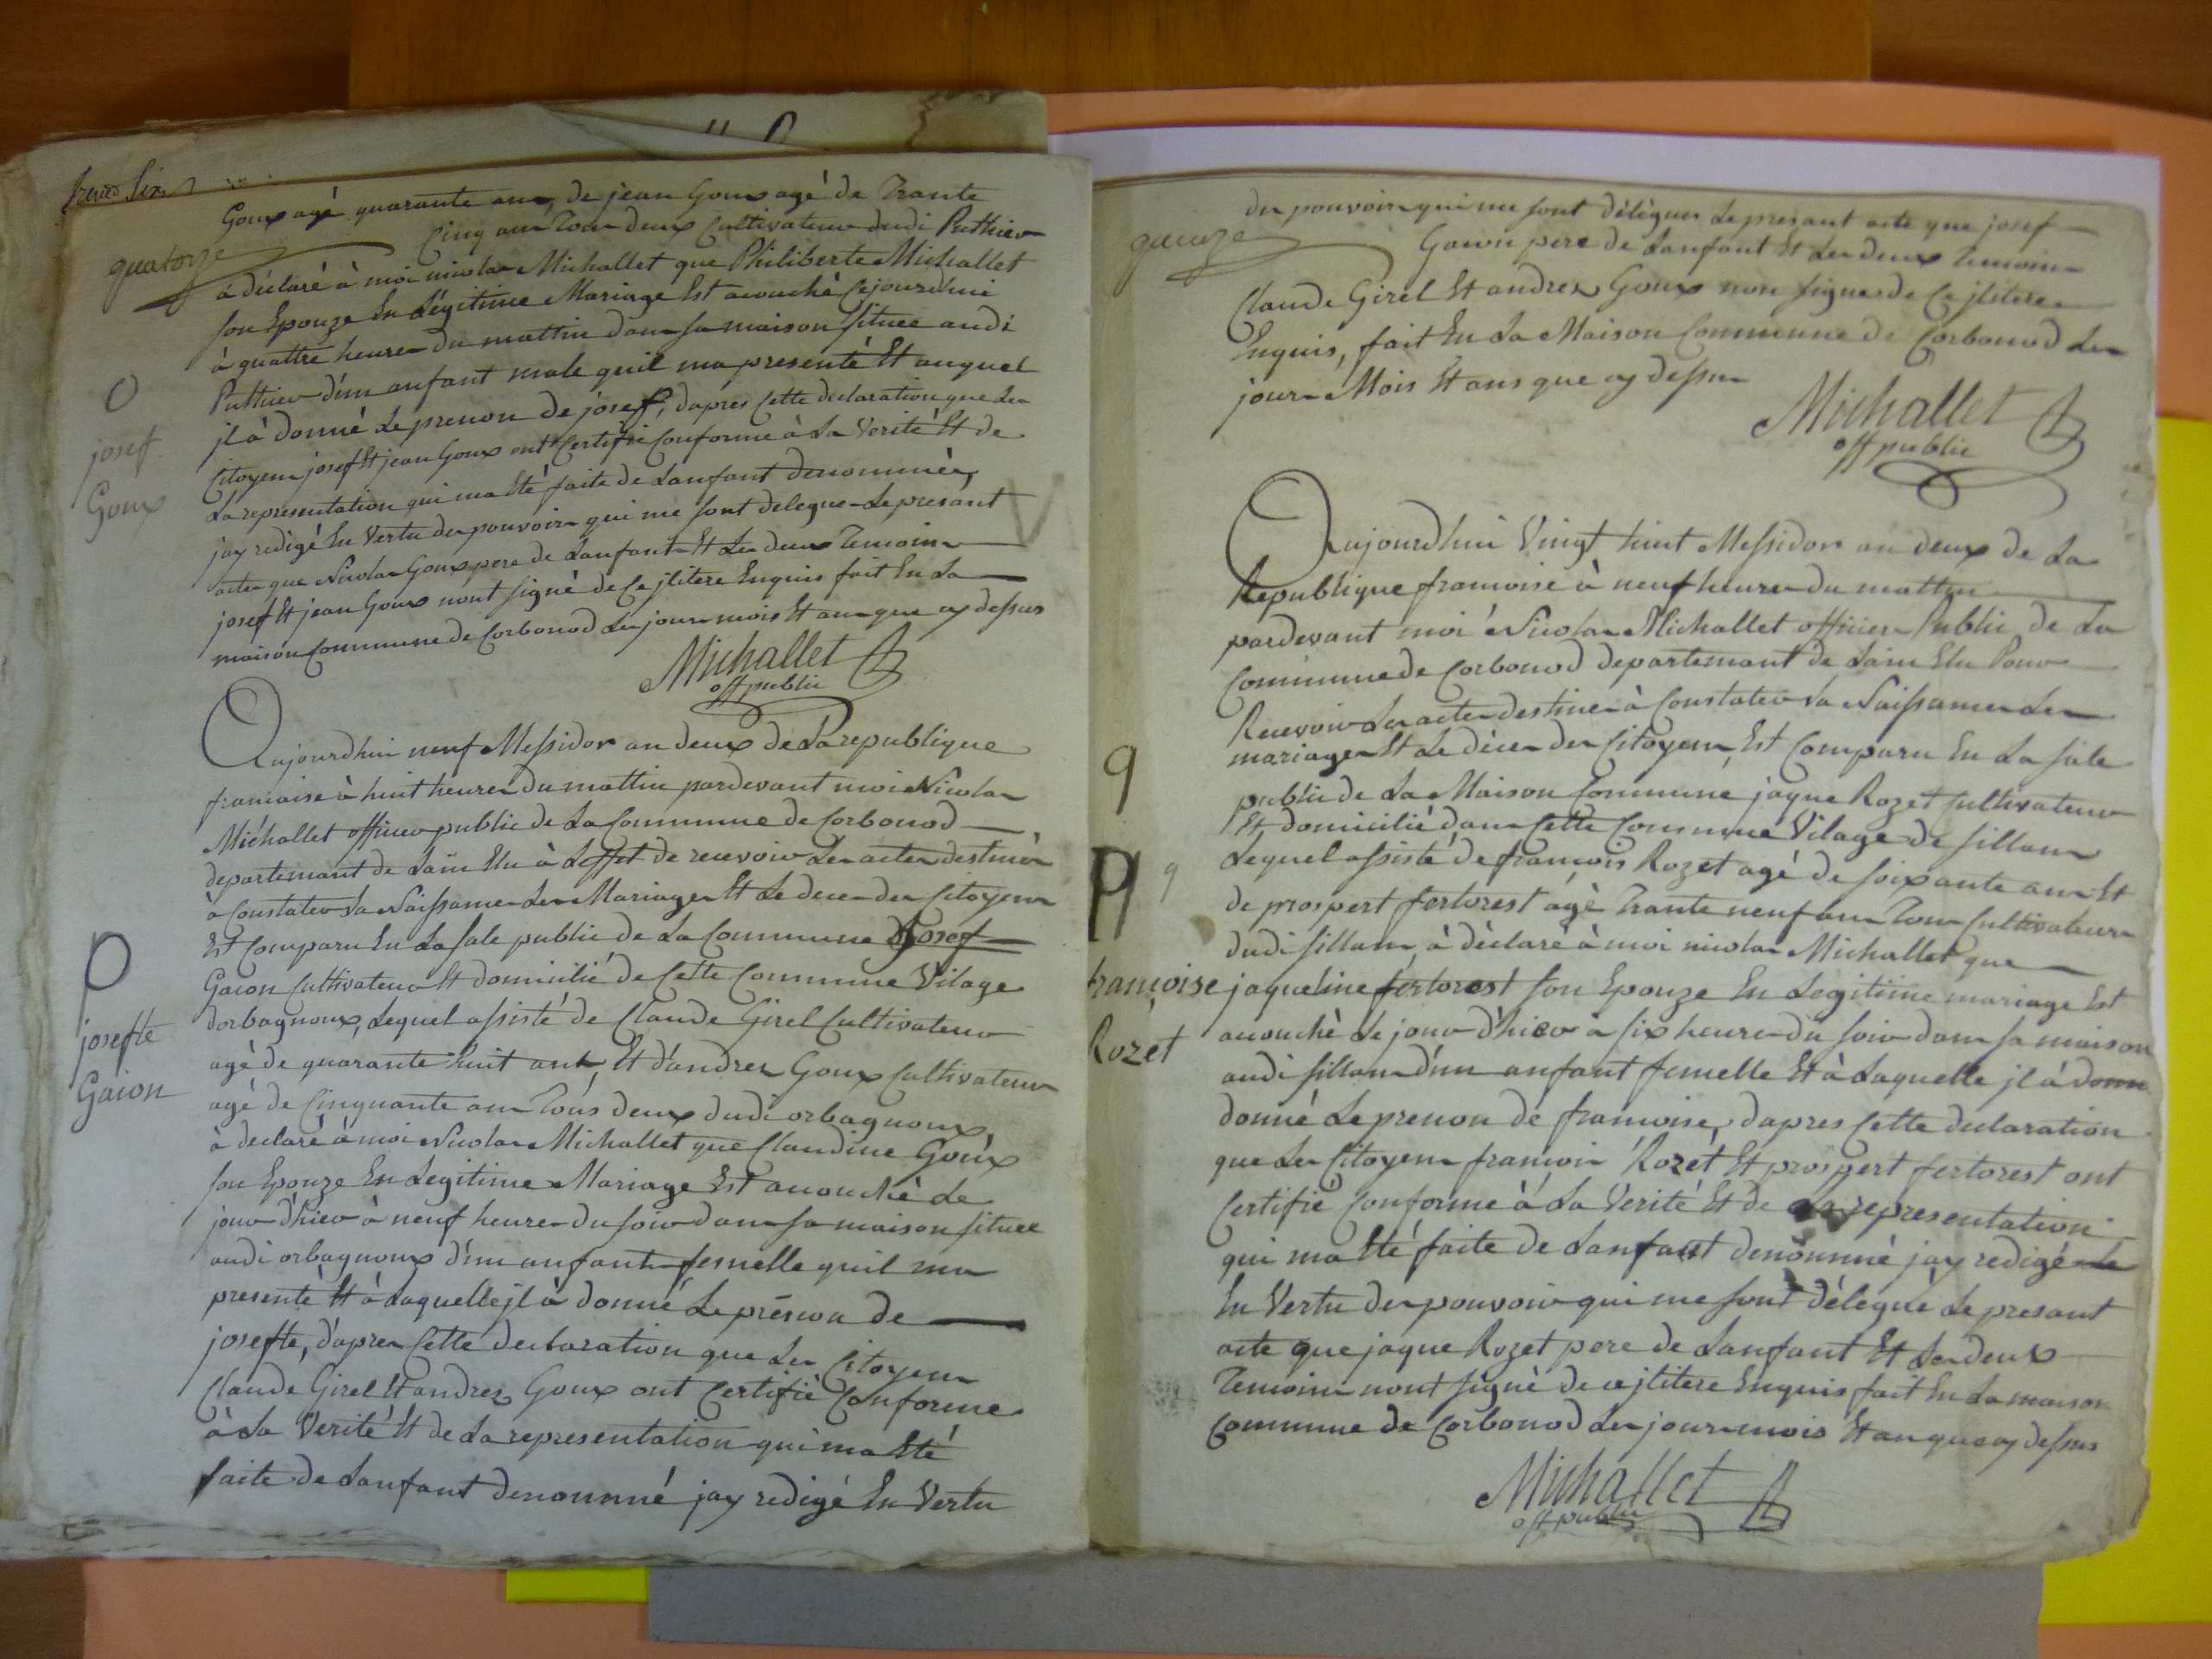 quatorze
Goux agé quarante ans, de jean Goux agé de Trante
Cinq ans Tous deux Cultivateur dudi Puthier
à déclaré à moi nicolas Michallet que Philiberte Michallet
son Epouze En Légitime Mariage Est acouché Cejourdhui
à quattre heures du mattin dans sa maison située audi
Puthier d'un anfant male quil ma presenté Et auquel
jl à donné Le prenon de josef, dapres Cette declaration que Les
Citoyens josef Et jean Goux ont Certifié Conforme à La Verité Et de
La representation qui ma Eté faite de Lanfant denommée,
jay redigé En Vertu des pouvoirs qui me sont delegue Le presant
acte que Nicolas Goux pere de Lanfant Et Les deux Temoins
josef Et jean Goux nont signé de Ce jlitere Enquis fait En La
maison Commune de Corbonod Les jour mois Et an que cy dessus
Michallet
off public
O
josef
Goux
Aujourdhui neuf Messidor an deux de La republique
francaise à huit heures du mattin pardevant moi Nicolas
Michallet officier public de La Commune de Corbonod
departemant de Lain Elu à Leffet de recevoir Les actes destinés
à Constater La Naissance Les Mariages Et Le deces des Citoyens
Est Comparu En La sale public de La Commune Josef
Gaion Cultivateur Et domicilié de Cette Commune Vilage
dorbagnoux, Lequel assisté de Claude Girel Cultivateur
agé de quarante huit ans, Et d'andres Goux Cultivateur
agé de Cinquante ans Tous deux dudi orbagnoux
à declaré à moi Nicolas Michallet que Claudine Goux
son Epouze En Legitime Mariage Est acouché Le
jour d'hier à neuf heures du soir dans sa maison située
audi orbagnoux d'un anfant femelle quil ma
presenté Et à Laquelle jl à donné Le prénon de
josefte, d'apres Cette declaration que Les Citoyens
Claude Girel Et andres Goux ont Certifié Conforme
à La Verité Et de La representation qui ma Eté
faite de Lanfant denommé jay redigé En Vertu
P
josefte
Gaion
quinze
des pouvoirs qui me sont délégues Le presant acte que josef
Gaion pere de Lanfant Et Les deux Temoins
Claude Girel Et andres Goux non signes de Ce jlitere
Enquis, fait En La Maison Commune de Corbonod Les
jours Mois Et ans que cy dessus
Michallet
off public
Aujourdhui Vingt huit Messidor an deux de La
Republique francoise à neuf heures du mattin
pardevant moi Nicolas Michallet officier Public de La
Commune de Corbonod departemant de Lain Elu Pour
Recevoir Les actes destinés à Constater La Naissance Les
mariages Et Le déces des Citoyens, Est Comparu En La sale
public de La Maison Commune jaque Rozet Cultivateur
Et domicilié dans Cette Commune Vilage de sillans
Lequel assisté de françois Rozet agé de soixante ans Et
de prospert fertorest agé Trante neuf ans Tous Cultivateurs
dudi sillans, à déclaré à moi nicolas Michallet que
jaqueline fertorest son Epouze En Legitime mariage Est
acouché Le jour d'hier à six heures du soir dans sa maison
audi sillans d'un anfant femelle Et à Laquelle jl à donn
donné Le prenon de francoise, dapres Cette declaration
que Les Citoyens francois Rozet Et prospert fertorest ont
Certifié Conforme à La Verité Et de La representation
qui ma Eté faite de Lanfant denommé jay redigé Le
En Vertu des pouvoir qui me sont délegué Le presant
acte que jaque Rozet pere de Lanfant Et Les deux
Temoins nont signé de ce jlitere Enquis fait En La maison
Commune de Corbonod Les jours mois Et an que cy dessus
Michallet
off public
9
P
9
francoise
Rozet